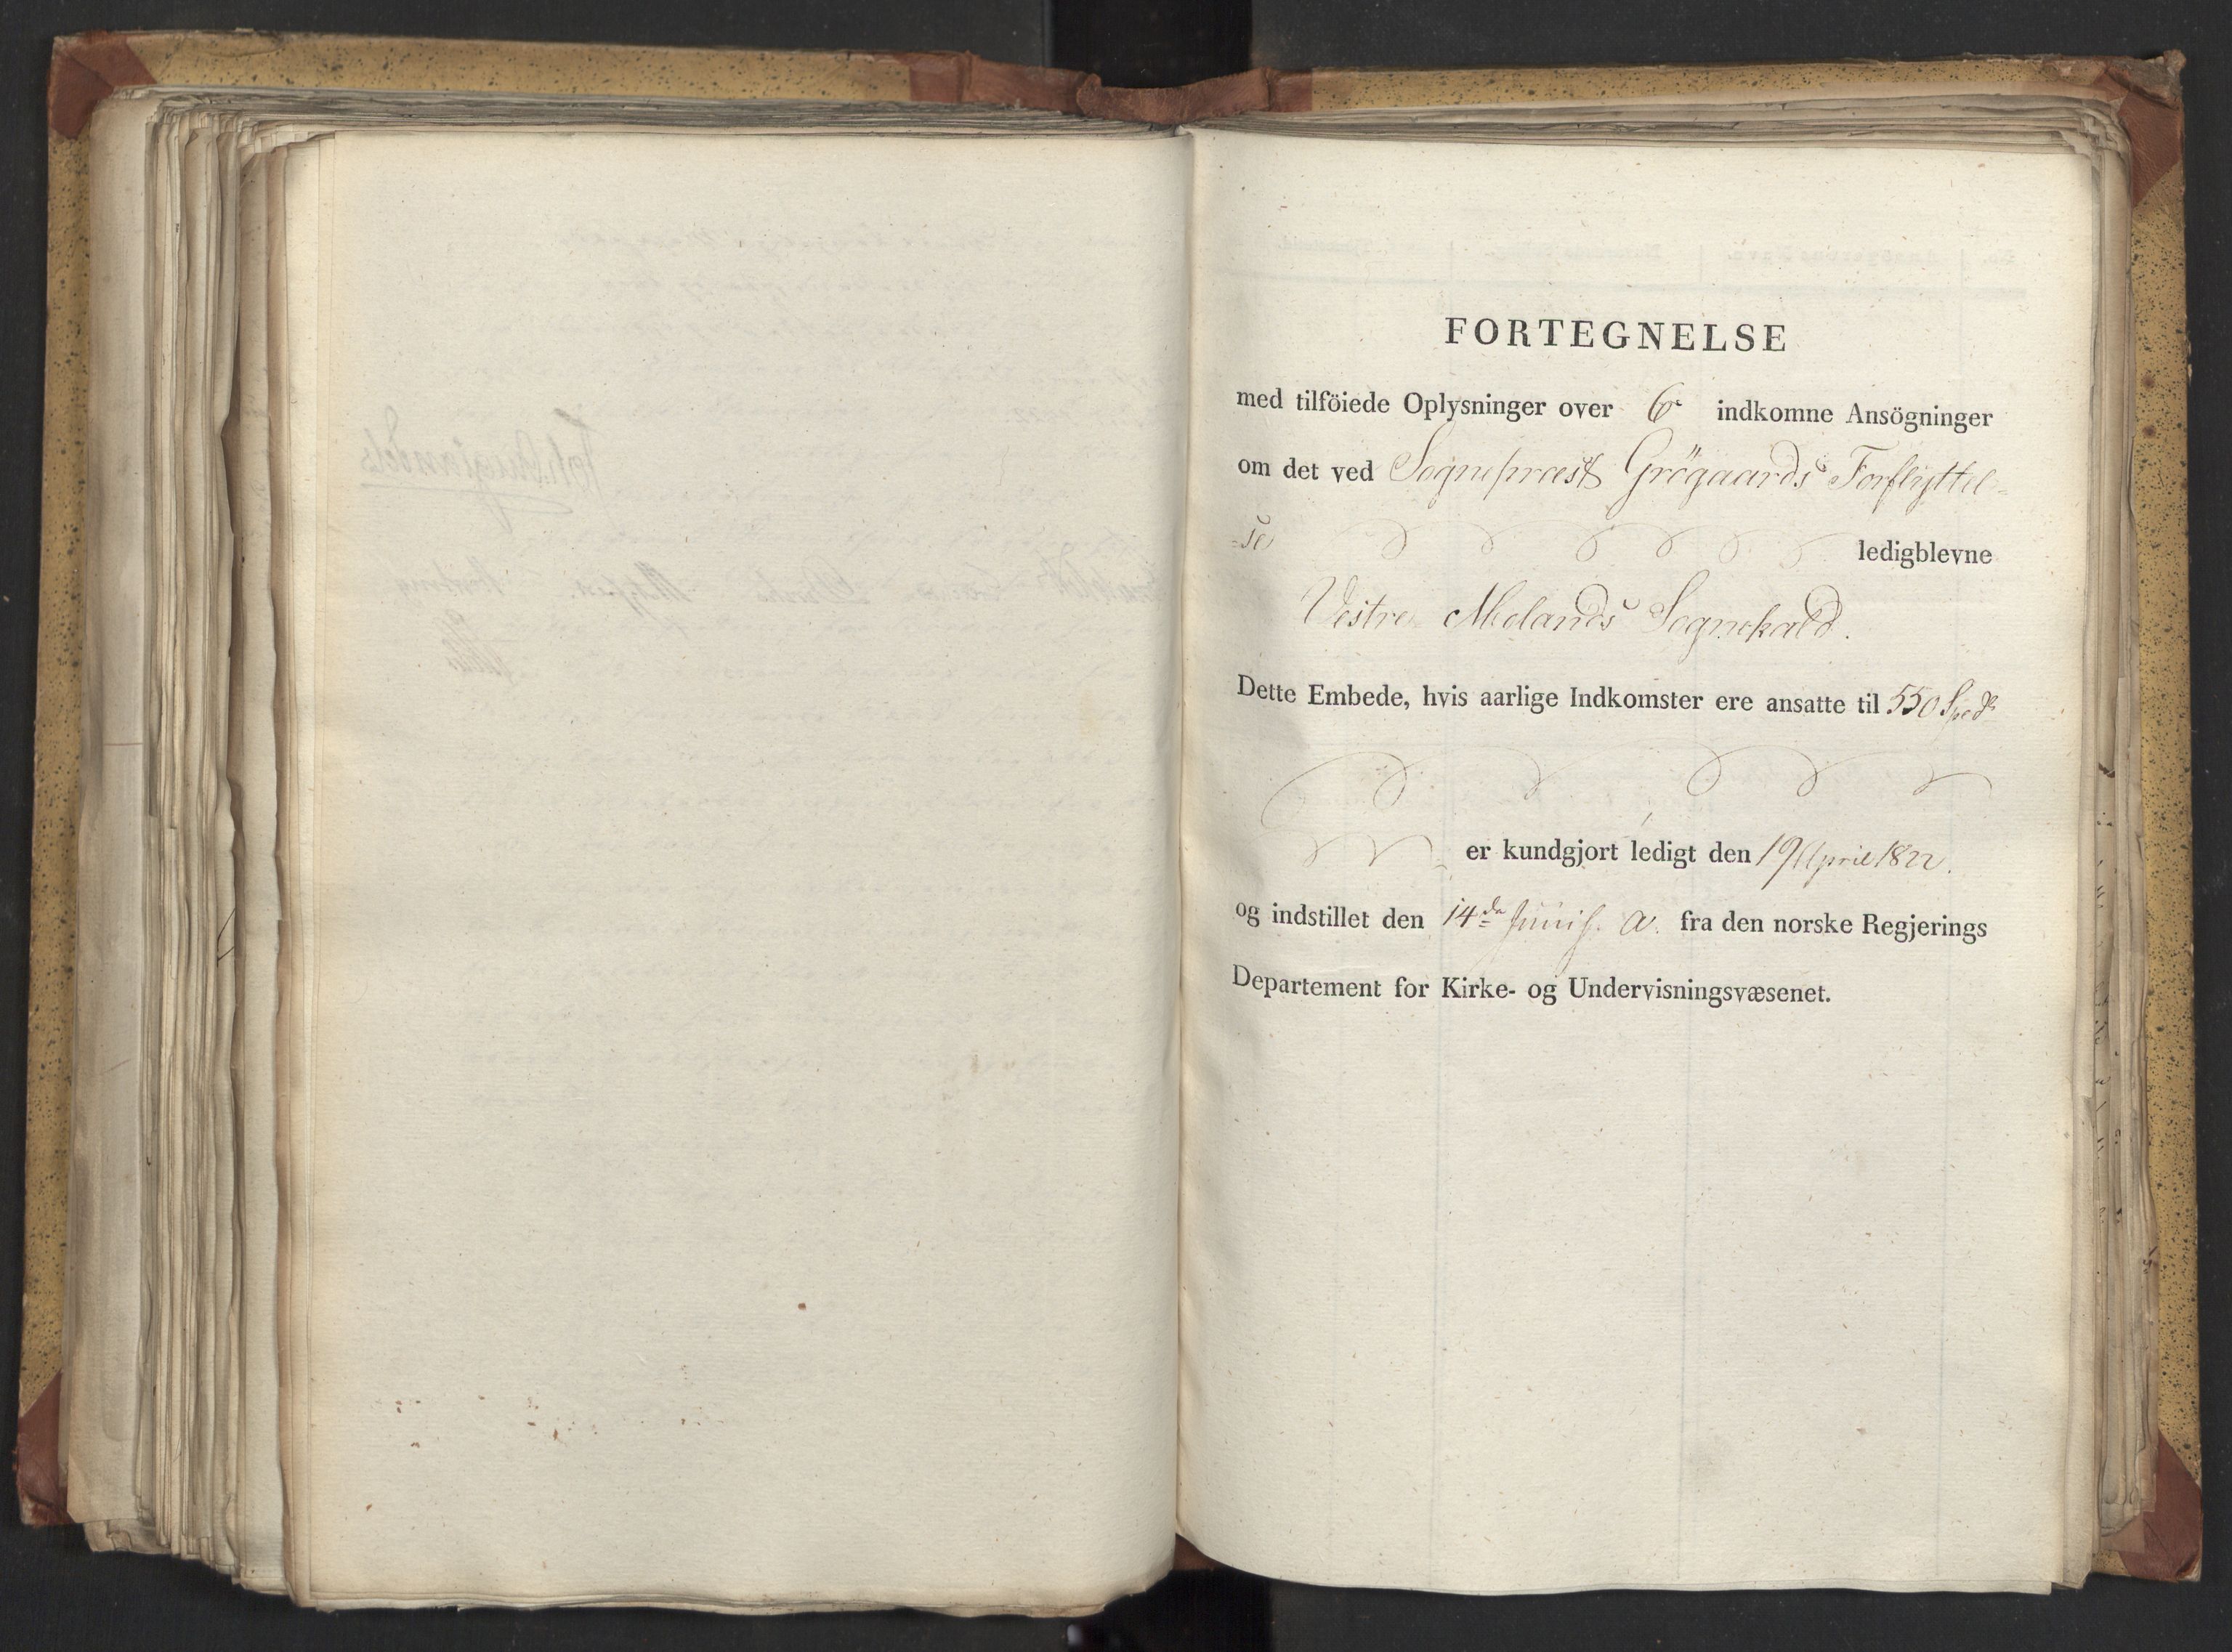 FORTEGNELSE
med tilföiede Oplysninger over 6 indkomne Ansögninger
om det ved Sognepræst Grögaards Forflyttel-
-se ledigblevne
Vestre Molands Sognekald.
Dette Embede, hvis aarlige Indkomster ere ansatte til 550 Spd
er kundgjort ledigt den 19 April 1822.
og indstillet den 14de Junii s. A. fra den norske Regjerings
Departement for Kirke- og Undervisningsvæsenet.